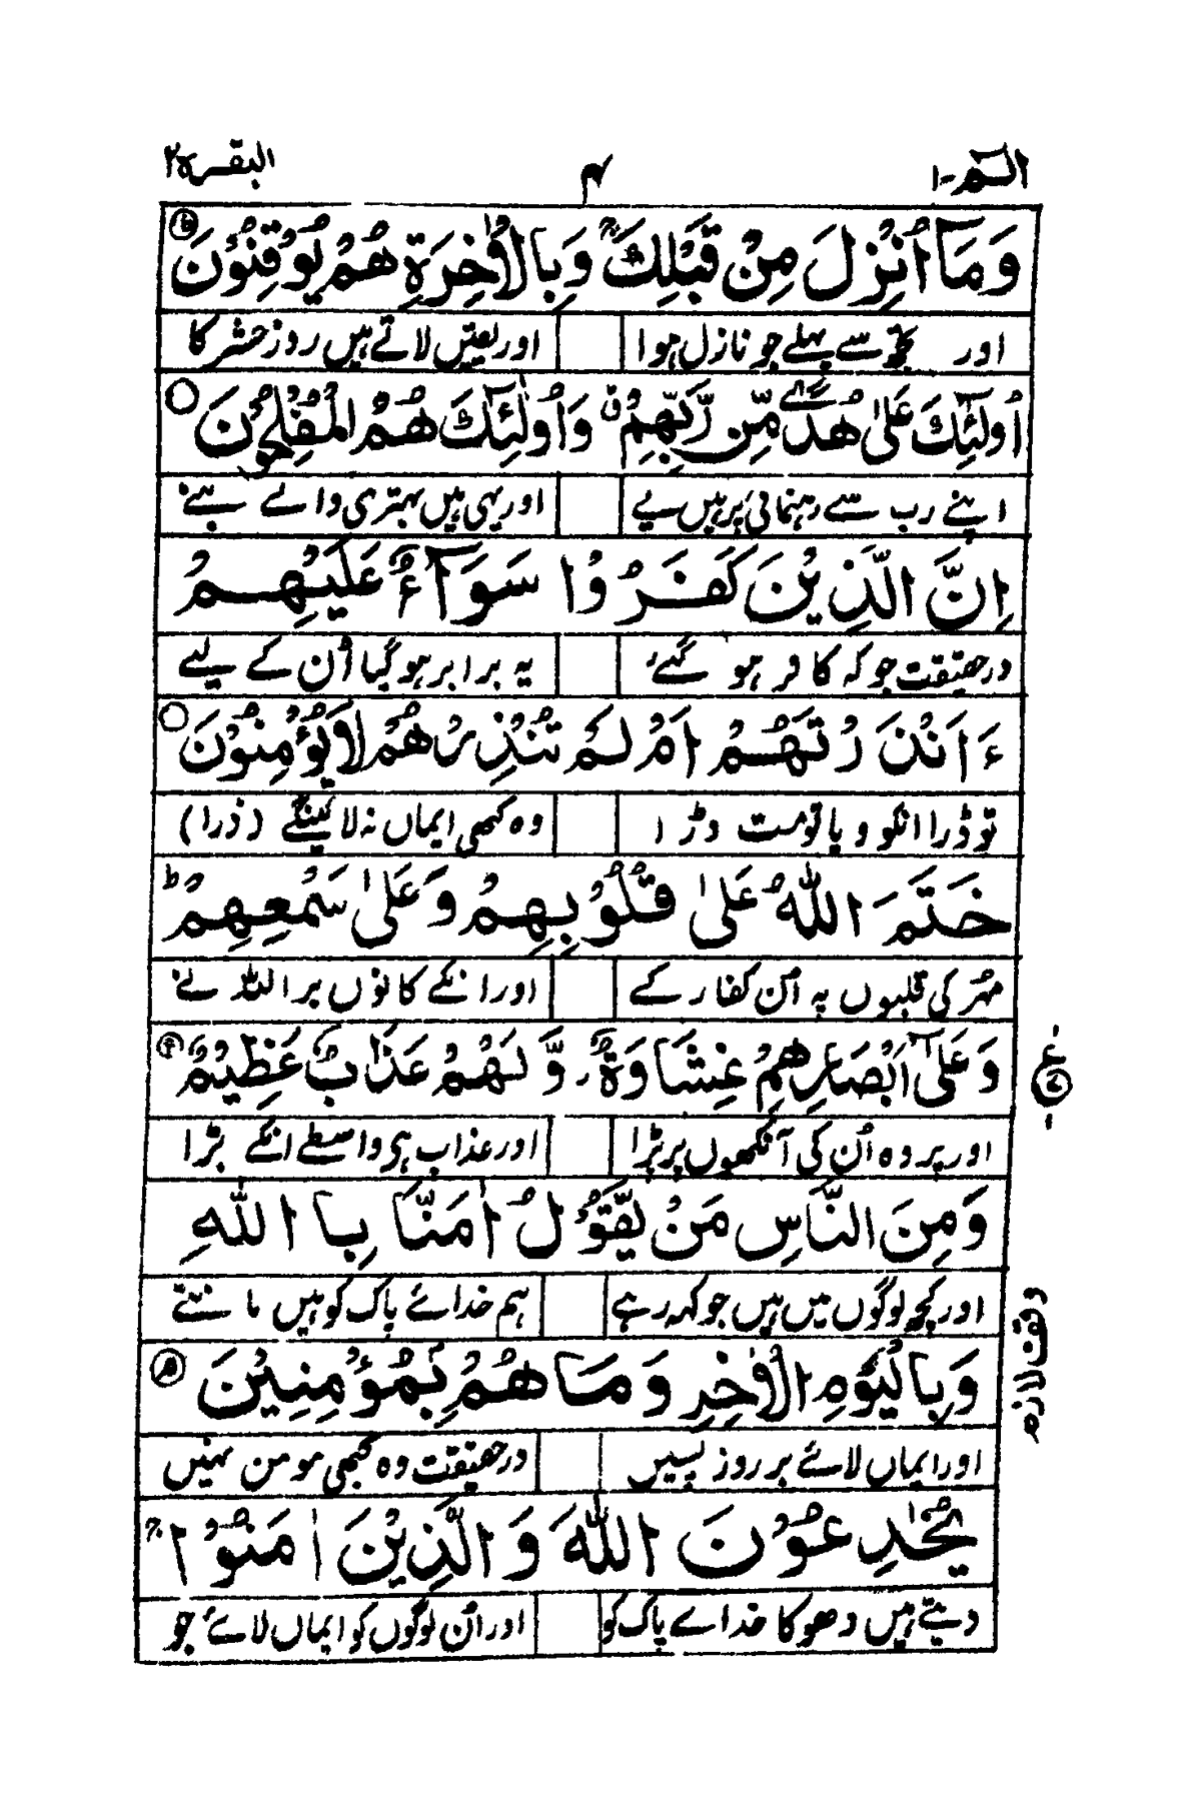 الٓـمّٓ-۱ ۴ البقرة۲
وَمَآ اُنْزِلَ مِنْ قَبْلِكَ ۚ وَبِالْاٰخِرَةِ هُمْ يُوْقِنُوْنَ
اور تجھ سے پہلے جو نازل ہوا اور یقیں لاتے ہیں روز حشر کا
اُولٰٓئِكَ عَلٰى هُدًى مِّنْ رَّبِّهِمْ ۗ وَاُولٰٓئِكَ هُمُ الْمُفْلِحُوْنَ
اپنے رب سے رہنمائی پر ہیں یے اور یہی ہیں بہتری والے بنے
اِنَّ الَّذِيْنَ كَفَرُوْا سَوَآءٌ عَلَيْهِمْ
درحقیقت جو کہ کافر ہو گئے یہ برابر ہو گیا اُن کے لیے
ءَاَنْذَرْتَهُمْ اَمْ لَمْ تُنْذِرْهُمْ لَا يُؤْمِنُوْنَ
تو ڈرا انکو و یا تو مت ڈرا وہ کبھی ایماں نہ لائینگے (ذرا)
خَتَمَ اللّٰهُ عَلٰى قُلُوْبِهِمْ وَعَلٰى سَمْعِهِمْ ؕ
مہُر کی قلبوں پہ اُن کفار کے اور انکے کانوں پر اللہ نے
وَعَلٰٓى اَبْصَارِهِمْ غِشَاوَةٌ ۫ وَّلَهُمْ عَذَابٌ عَظِيْمٌ
ع
اور پردہ اُن کی آنکھوں پر پڑا اور عذاب ہی واسطے انکے بڑا
وَمِنَ النَّاسِ مَنْ يَّقُوْلُ اٰمَنَّا بِاللّٰهِ
اور کچھ لوگوں میں ہیں جو کہہ رہے ہم خدائے پاک کو ہیں مانتے
وَبِالْيَوْمِ الْاٰخِرِ وَمَا هُمْ بِمُؤْمِنِيْنَ
وقف لازم
اور ایماں لائے بر روز پسیں درحقیقت وہ کبھی مومن نہیں
يُخٰدِعُوْنَ اللّٰهَ وَالَّذِيْنَ اٰمَنُوْا ۚ
دیتے ہیں دھوکا خدائے پاک کو اور اُن لوگوں کو ایماں لائے جو